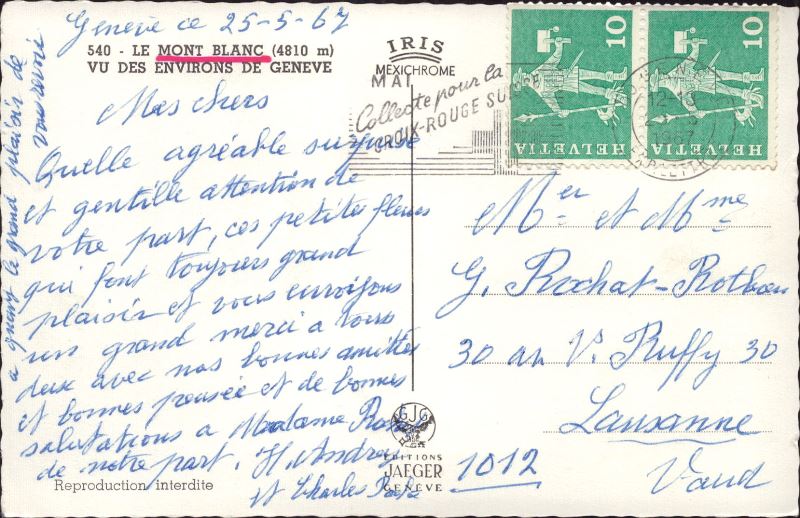 Genève ce 25-5-67
540 - LE MONT BLANC (4810 m)
VU DES ENVIRONS DE GENEVE
Mes chers
Quelle agréable surprise
et gentille attention de
votre part, ces petites fleurs
qui font toujours grand
plaisir et vous envoyons
un grand merci a tous
deux avec nos bonnes amitiés
et bonnes pensée et de bonnes
salutations a Madame
de notre part. H. Andrey
et Charles
a quand le grand plaisir de
vous revoir
Reproduction interdite
IRIS
MEXICHROME
MAI
Collecte pour la
CROIX-ROUGE SUISSE
GJG
EDITIONS
JAEGER
GENÈVE
10
HELVETIA
10
HELVETIA
1967
Mer et Mme
G. Rochat-Rothen
30 av. V. Ruffy 30
Lausanne
1012
Vaud